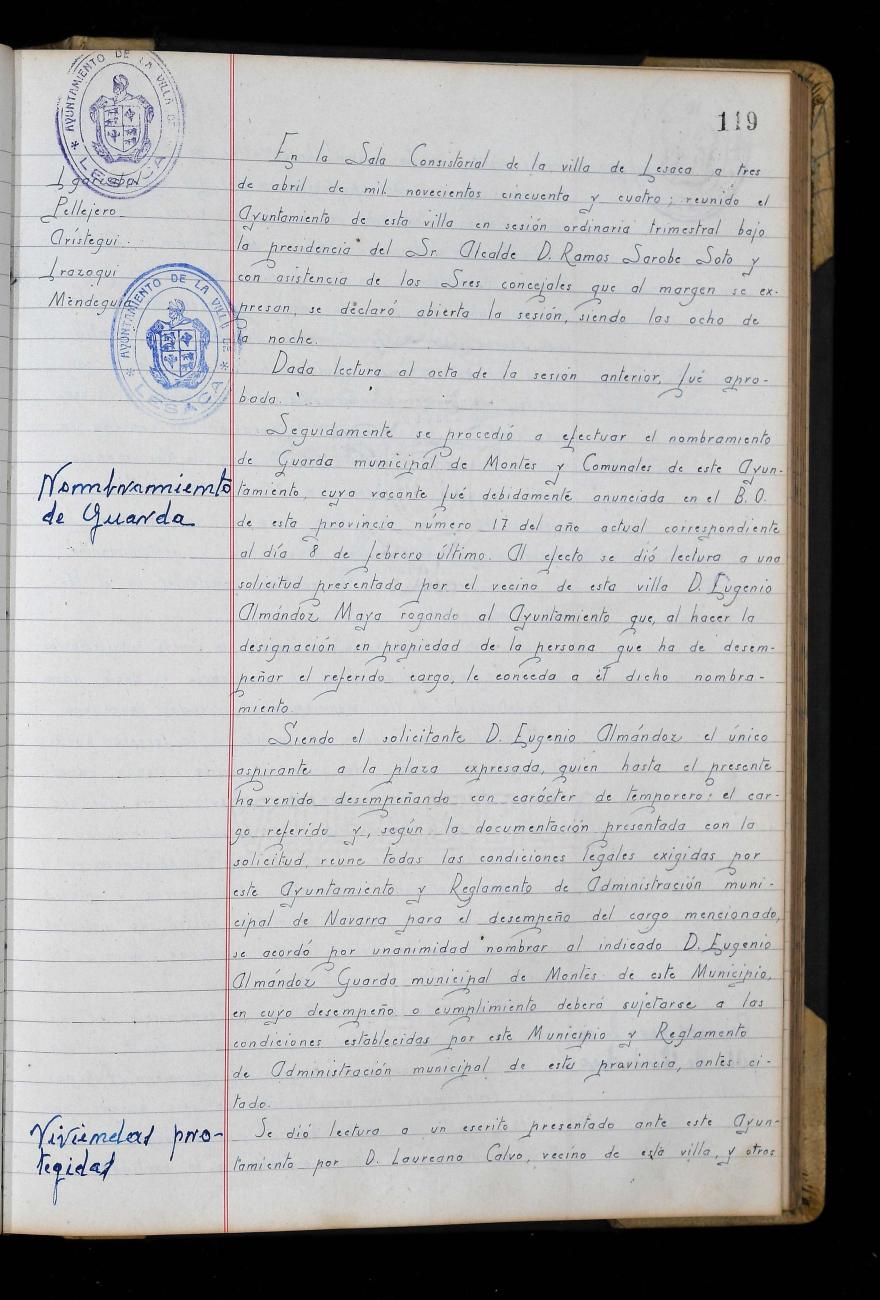 119
AYUNTAMIENTO DE LA VILLA DE
* LESACA *
Pellejero
Arístegui.
Irazoqui
Mendeguía
AYUNTAMIENTO DE LA VILLA DE
* LESACA *
En la Sala Consistorial de la villa de Lesaca a tres
de abril de mil novecientos cincuenta y cuatro; reunido el
Ayuntamiento de esta villa en sesión ordinaria trimestral bajo
la presidencia del Sr. Alcalde D. Ramos Sarobe Soto y
con asistencia de los Sres concejales que al margen se ex-
presan, se declaró abierta la sesión, siendo las ocho de
la noche.
Dada lectura al acta de la sesión anterior, fué apro-
bada.
Nombramiento
de Guarda
Seguidamente se procedió a efectuar el nombramiento
de Guarda municipal de Montes y Comunales de este Ayun-
tamiento, cuya vacante fué debidamente anunciada en el B.O.
de esta provincia número 17 del año actual correspondiente
al día 8 de febrero último. Al efecto se dió lectura a una
solicitud presentada por el vecino de esta villa D. Eugenio
Almándoz Maya rogando al Ayuntamiento que, al hacer la
designación en propiedad de la persona que ha de desem-
peñar el referido cargo, le conceda a él dicho nombra-
miento.
Siendo el solicitante D. Eugenio Almándoz el único
aspirante a la plaza expresada, quien hasta el presente
ha venido desempeñando con carácter de temporero el car-
go referido y, según la documentación presentada con la
solicitud, reune todas las condiciones legales exigidas por
este Ayuntamiento y Reglamento de Administración muni-
cipal de Navarra para el desempeño del cargo mencionado,
se acordó por unanimidad nombrar al indicado D. Eugenio
Almándoz Guarda municipal de Montes de este Municipio,
en cuyo desempeño o cumplimiento deberá sujetarse a las
condiciones establecidas por este Municipio y Reglamento
de Administración municipal de esta provincia, antes ci-
tado.
Viviendas pro-
tegidas
Se dió lectura a un escrito presentado ante este Ayun-
tamiento por D. Laureano Calvo, vecino de esta villa, y otros